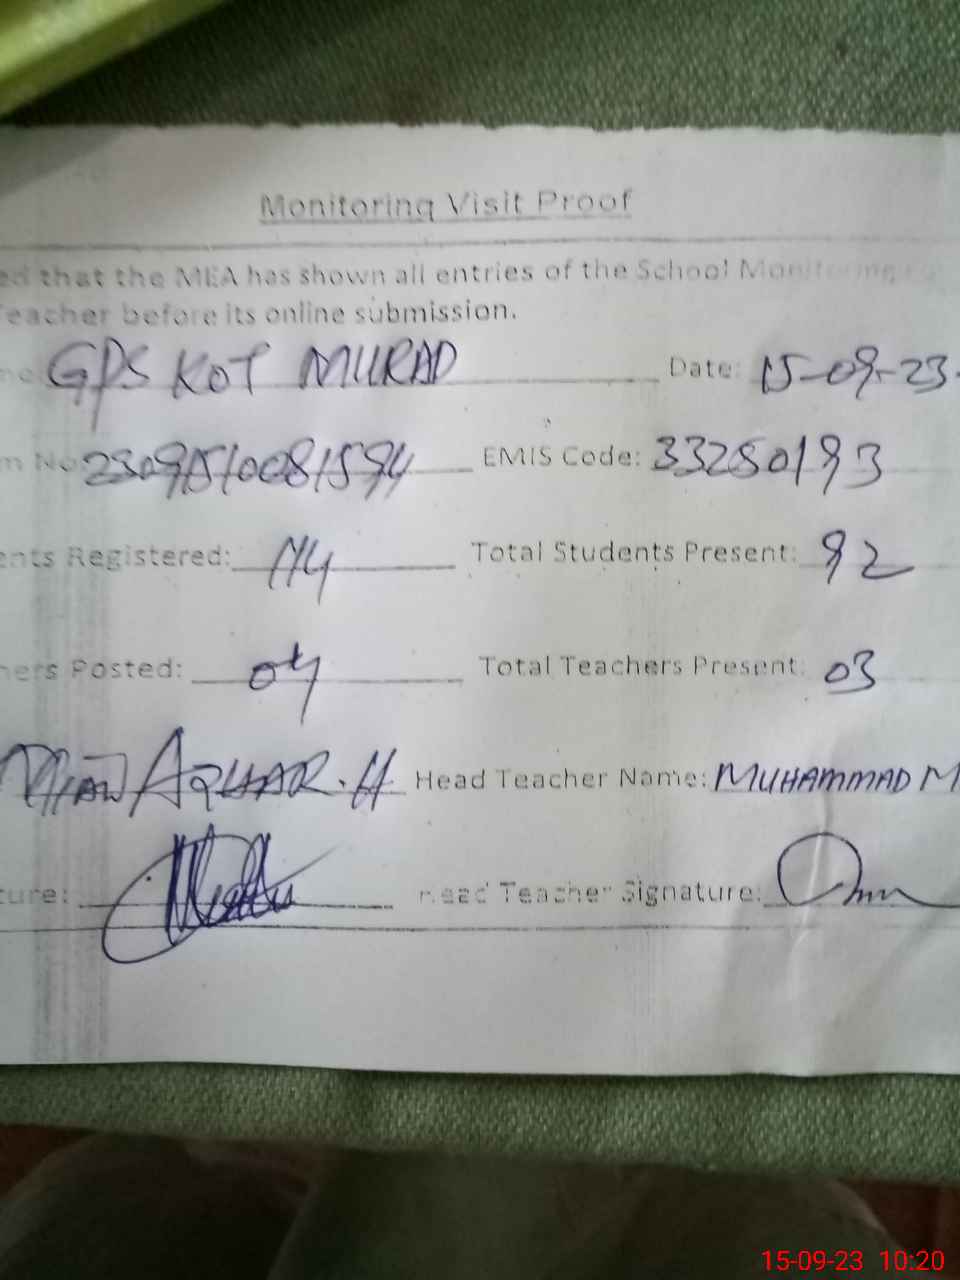 Monitoring Visit Proof
ed that the MEA has shown all entries of the School Monitoring
Teacher before its online submission.
GPS KOT MURAD Date: 15-09-23
No 230915/0081594 EMIS Code: 33250193
ents Registered: 114 Total Students Present: 92
ers Posted: 04 Total Teachers Present: 03
Head Teacher Name: MUHAMMAD M
ture: Head Teacher Signature:
15-09-23 10:20